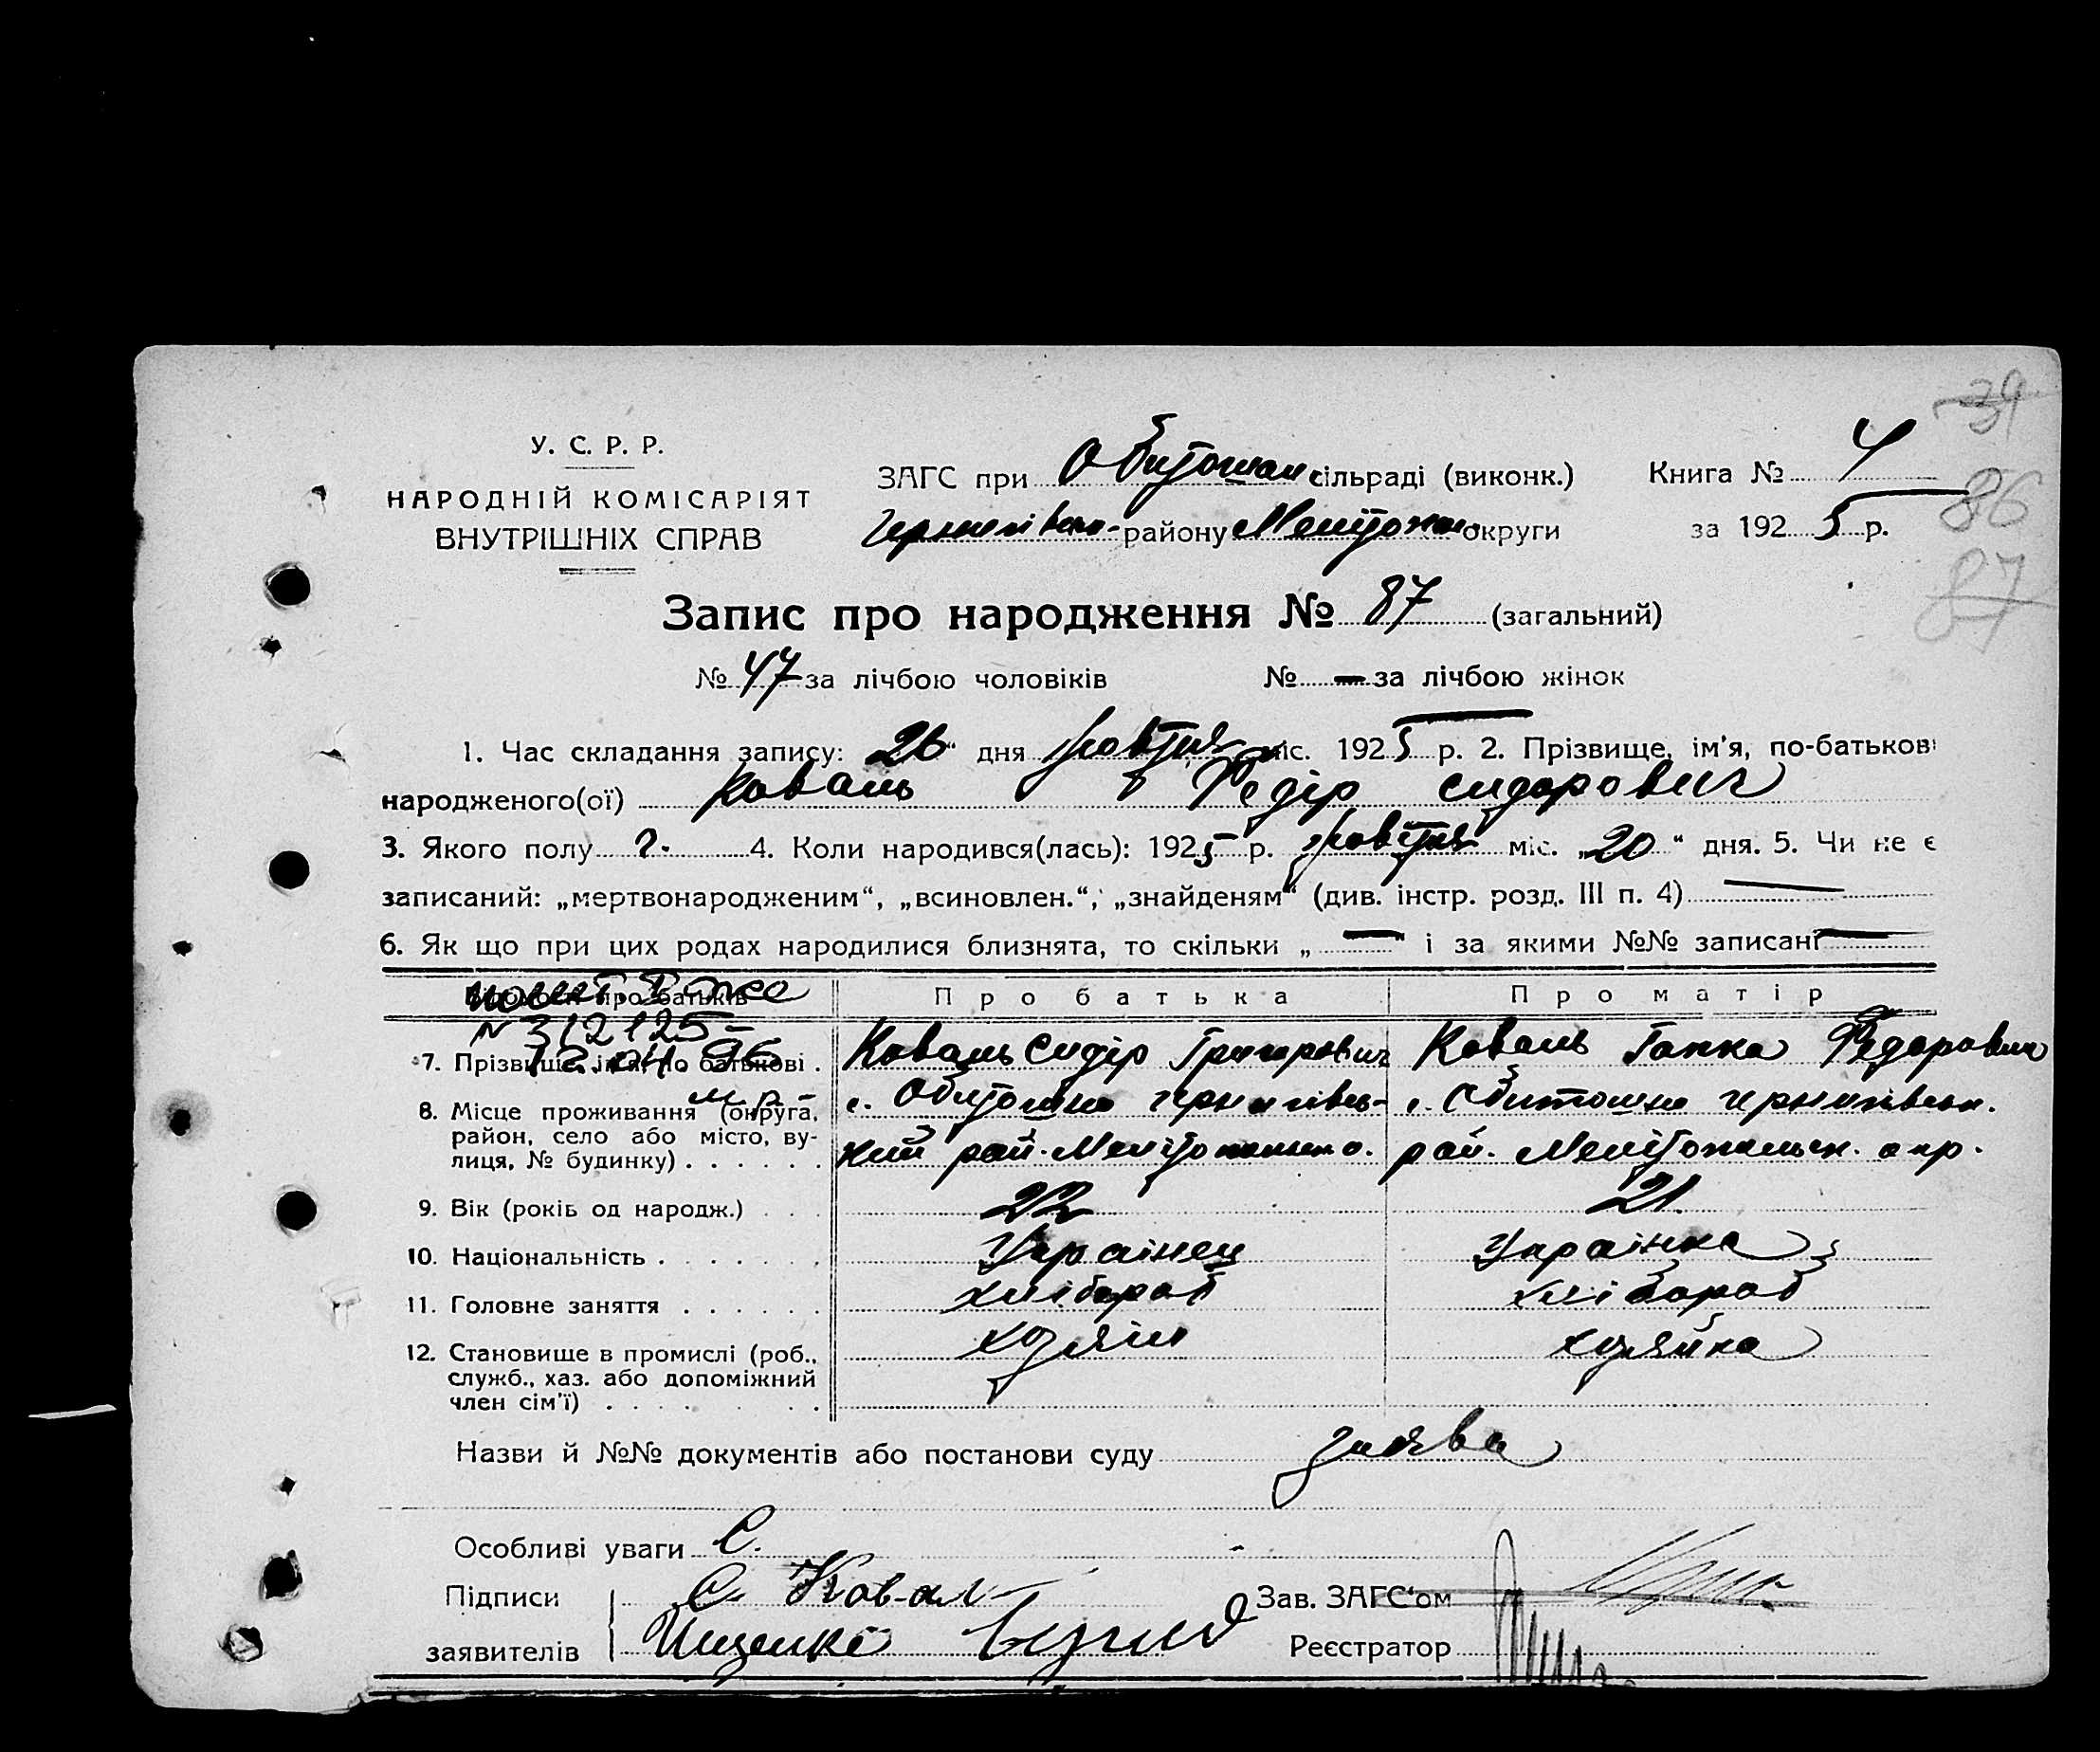 39
У. С. Р. Р.
НАРОДНІЙ КОМІСАРІЯТ
ВНУТРІШНІХ СПРАВ
ЗАГС при Обитошан сільраді (виконк.) Книга № 4
86
району округи за 1925 р.
87
Запис про народження № 87 (загальний)
№ 47 за лічбою чоловіків № — за лічбою жінок
1. Час складання запису: 26 “ дня жовтня міс. 1925 р. 2. Прізвище, ім’я, по-батькові
народженого(ої) Коваль Федір Сидорович
3. Якого полу ч. 4. Коли народився(лась): 1925 р. жовтня міс. „20“ дня. 5. Чи не є
записаний: „мертвонародженим“, „всиновлен.“, „знайденям“ (див. інстр. розд. III п. 4) —
6. Як що при цих родах народилися близнята, то скільки „ — “ і за якими №№ записані —
Відомости про батьків Про батька Про матір
№ 312125
7. Прізвище, ім'я, по батькові . Коваль Сидір Григорович Коваль Гапка Федоровна
8. Місце проживання (округа, район, село або місто, вулиця, № будинку) . . . . . . с. Обитошне Чернигівсь-
кий рай. с. Обитошне Чернигівськ.
рай. Мелітопольськ. окр.
9. Вік (років од народж.) . . . 22 21.
10. Національність . . . . . . . Українец Українка
11. Головне заняття . . . . . . хлібороб хлібороб
12. Становище в промислі (роб., служб., хаз. або допоміжний член сім'ї) . . . . . . . . хозяін хозяйка
Назви й №№ документів або постанови суду заява
Особливі уваги С.
Підписи С. Коваль Зав. ЗАГС‘ом
заявителів Ищенко Реєстратор